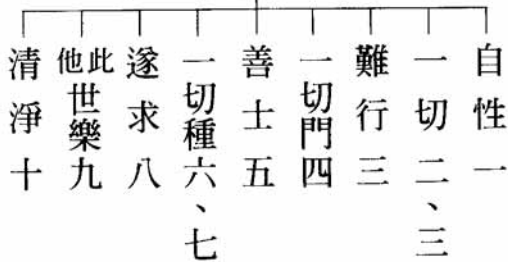 自性一
一切二、三
難行三
一切門四
善士五
一切種六、七
遂求八
此他世樂九
清淨十